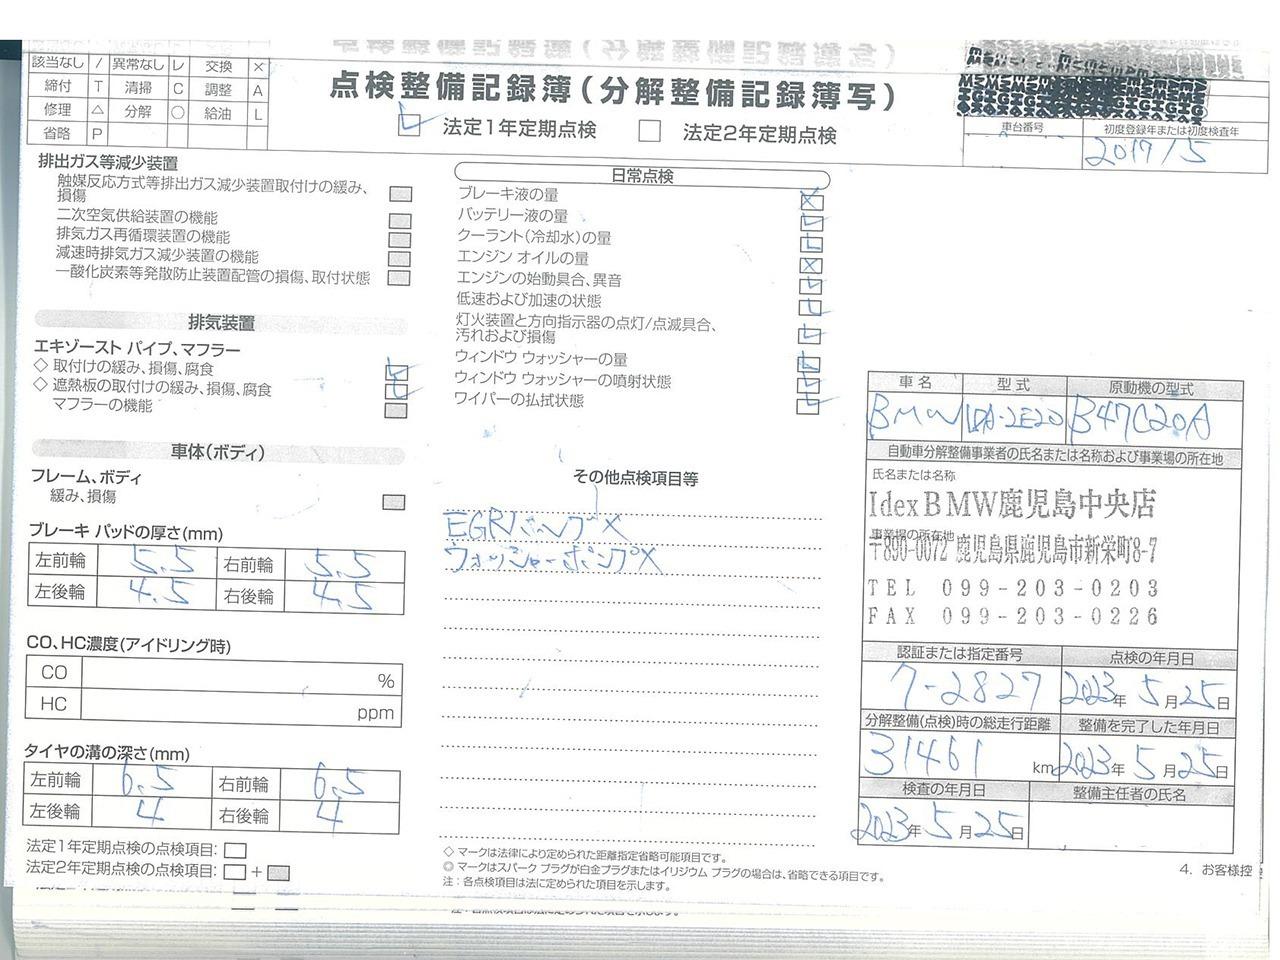 該当なし / 異常なし レ 交換 ×
締付 T 清掃 C 調整 A
修理 △ 分解 ○ 給油 L
省略 P
点検整備記録簿(分解整備記録簿写)
レ 法定1年定期点検 □ 法定2年定期点検
車台番号 初度登録年または初度検査年
2017/5
排出ガス等減少装置
触媒反応方式等排出ガス減少装置取付けの緩み、
損傷
二次空気供給装置の機能
排気ガス再循環装置の機能
減速時排気ガス減少装置の機能
一酸化炭素等発散防止装置配管の損傷、取付状態
排気装置
エキゾースト パイプ、マフラー
◇ 取付けの緩み、損傷、腐食 レ
◇ 遮熱板の取付けの緩み、損傷、腐食 レ
マフラーの機能
車体(ボディ)
フレーム、ボディ
緩み、損傷
ブレーキ パッドの厚さ(mm)
左前輪 5.5 右前輪 5.5
左後輪 4.5 右後輪 4.5
CO、HC濃度(アイドリング時)
CO %
HC ppm
タイヤの溝の深さ(mm)
左前輪 6.5 右前輪 6.5
左後輪 4 右後輪 4
法定1年定期点検の点検項目: □
法定2年定期点検の点検項目: □+□
日常点検
ブレーキ液の量 ×
バッテリー液の量 レ
クーラント(冷却水)の量 L
エンジン オイルの量 ×
エンジンの始動具合、異音 レ
低速および加速の状態 レ
灯火装置と方向指示器の点灯/点滅具合、
汚れおよび損傷 レ
ウィンドウ ウォッシャーの量 L
ウィンドウ ウォッシャーの噴射状態 レ
ワイパーの払拭状態 レ
その他点検項目等
EGRバルブ×
ウォッシャーポンプ×
◇ マークは法律により定められた距離指定省略可能項目です。
◎ マークはスパーク プラグが白金プラグまたはイリジウム プラグの場合は、省略できる項目です。
注:各点検項目は法に定められた項目を示します。
車名 型式 原動機の型式
BMW LDA-2E20 B47C20A
自動車分解整備事業者の氏名または名称および事業場の所在地
氏名または名称
Idex BMW鹿児島中央店
事業場の所在地
〒890-0072 鹿児島県鹿児島市新栄町8-7
TEL 099-203-0203
FAX 099-203-0226
認証または指定番号 点検の年月日
7-2827 2023年 5月25日
分解整備(点検)時の総走行距離 整備を完了した年月日
31461 km 2023年 5月25日
検査の年月日 整備主任者の氏名
2023年 5月25日
4. お客様控